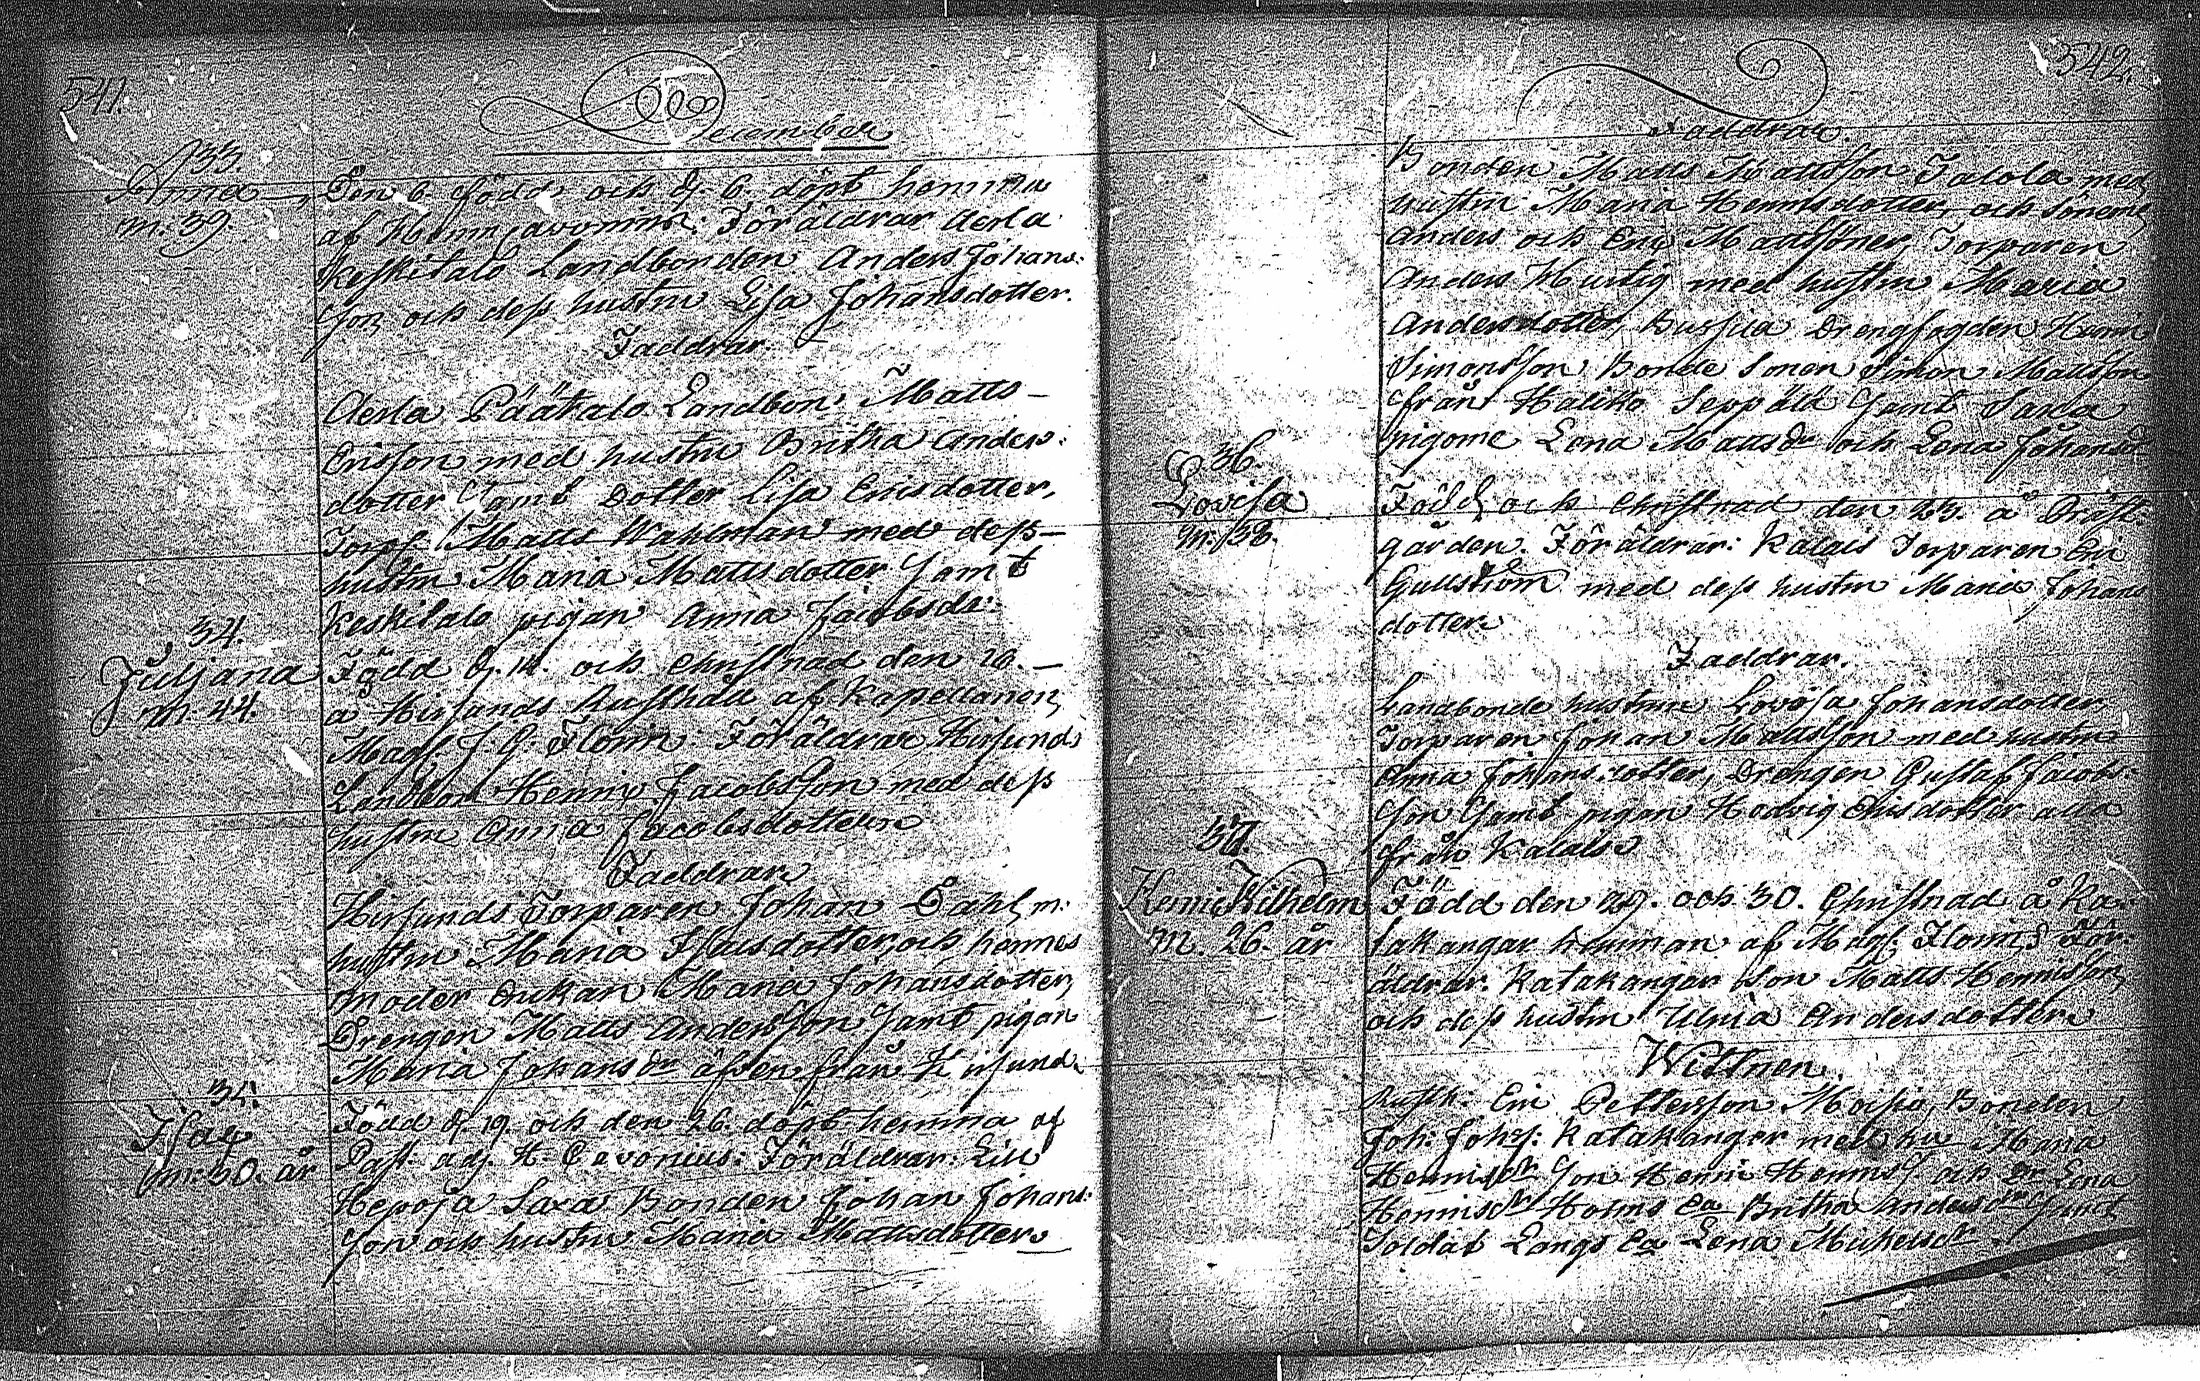 541.
December
33.
Anna
m. 39.
Den 6. född och d. 6. döpt hemma
af Henn: Föräldrar Aerla
Keskitalo Landbonden Anders Johans:
son och dess hustru Lisa Johansdotter.
Faddrar
Aerla Päätalo Landbon: Matts
Ericsson med hustru Britha Anders:
dotter samt Dotter Lisa Ericsdotter,
Torp: Matts Wahlman med dess
hustru Maria Mattsdotter samt
Keskitalo pigan Anna Jacobsdr.
34.
Juljana
m. 44.
Född d. 14. och Christnad den 16.
å Hirsunds Rusthåll af Kapellanen
Mag: J. G. Florin. Föräldrar Hirsunds
Landbon Henric Jacobsson med dess
hustru Anna Jacobsdotter
Faddrar
Hirsunds Torparen Johan Dahl m:
hustru Maria Isacsdotter, och hennes
moder Enkan Maria Johansdotter,
Drengen Matts Andersson samt pigan
Maria Johansdr äfven från Hirsund.
35.
Isac
m: 30. år
Född d. 19. och den 26. döpt hemma af
Past: adj. H. Cavonius: Föräldrar: Lill
Hepoja Saxa Bonden Johan Johans:
son och hustru Maria Mattsdotter
542.
Faddrar
Bonden Matts Mattsson Talola med
hustru Maria Henricsdotter, och Sönerne
Anders och Eric Mattsöner, Torparen
Anders Hurtig med hustru Maria
Andersdotter, Drengfogden Henric
Simonsson Bonde Sonen Simon Mattsson
från Halikko Seppälä samt Saxa
pigorne Lena Mattsdr och Lena Johansdr
36.
Lovisa
m. 38.
Född och Christnad den 23. å Präst-
gården. Föräldrar: Kalais Torparen Eric
Gullström med dess hustru Maria Johans
dotter
Faddrar.
Landbonde hustrun Lovisa Johansdotter,
Torparen Johan Mattsson med hustru
Anna Johansdotter, Drengen Gustaf Jacobs-
son samt pigan Hedvig Ericsdotter alla
från Kalais
37.
Henric Wilhelm
m. 26. år
Född den 29. och 30. Christnad å Ka-
takangar hemman af Mag: Florin. För-
äldrar. Katakangar Son Matts Henricsson
och dess hustru Ulrica Andersdotter
Wittnen.
Rusth: Eric Pettersson Moisio, Bonden
Joh: Johs: Katakangar med hu Maria
Henricsdr Son Henric Henrics: och Dr Lena
Henricsdr Holms Ea Britha Andersdr samt
Soldat Långs Ea Lena Michelsdr.